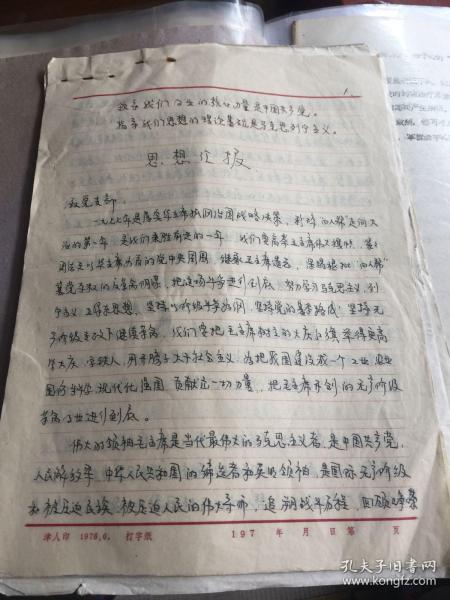 1.
领导我们事业的核心力量是中国共产党。
指导我们思想的理论基础是马克思列宁主义。
思想汇报
敬党支部：
一九七七年是属华主席抓纲治国战略决策，粉碎"四人帮"走向大
治的第一年，是我们乘胜前进的一年。我们要高举毛主席伟大旗帜，紧
团结在以华主席为首的党中央周围，继承毛主席遗志，深揭狠批"四人帮"
篡党夺权的反革命罪行，把这场斗争进行到底。努力学习马克思主义，列
宁主义，毛泽东思想，坚持以阶级斗争为纲，坚持党的基本路线，坚持无
产阶级专政下继续革命，我们要把毛主席树立的大庆红旗举得更高
学大庆，学铁人，甩开膀子大干社会主义，为把我国建设成一个工业，农业
国防，科学，现代化强国贡献出一切力量，把毛主席开创的无产阶级
革命事业进行到底。
伟大的领袖毛主席是当代最伟大的马克思主义者，是中国共产党，
人民解放军，中华人民共和国的缔造者和英明领袖，是国际无产阶级
和被压迫民族，被压迫人民的伟大导师，追溯战斗历程，回顾峥嵘
津人印 1976,6. 打字纸
197 年 月 日 第 页
孔夫子旧书网
book.kongfz.com